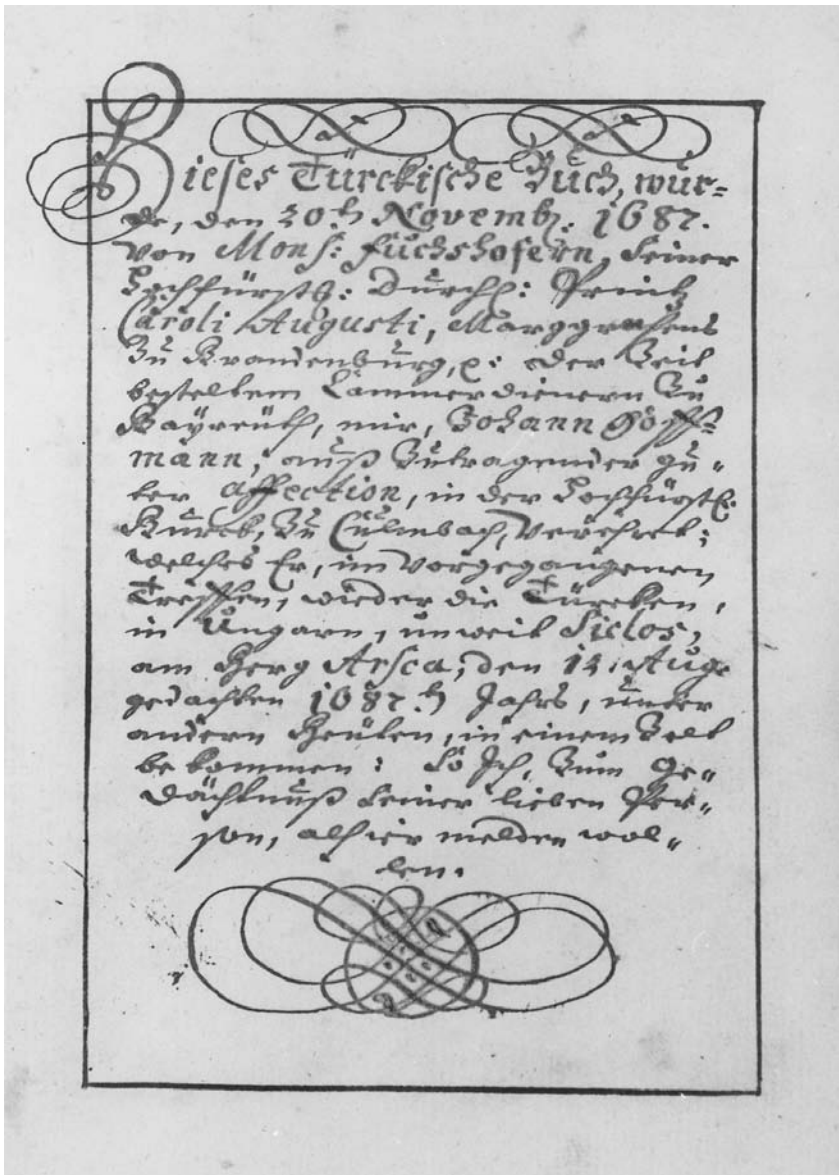 Dieses Türckische Buch, wur=
de, den 20.t. Novemb. 1687.
von Mons: Fuchshofern, Seiner
Hochfürstl: Durchl: Printz
Caroli Augusti, Marggrafens
zu Brandenburg, p: der Zeit
bestelltem Cammerdienern zu
Bayreuth, mir, Johann Hoff=
mann, auß zutragender gu=
ter affection, in der Hochfürstl.
Burck, zu Culmbach, verehret;
welches Er, im vorgegangenen
Treffen, wieder die Türcken,
in Ungarn, unweit Siclos,
am Berg Arsca, den 12. Aug.
gedachten 1687.t. Jahrs, unter
andern Beuten, in einem Zelt
bekommen: so Ich, zum Ge=
dächtnuß seiner lieben Per=
son, alhier melden wol=
len.